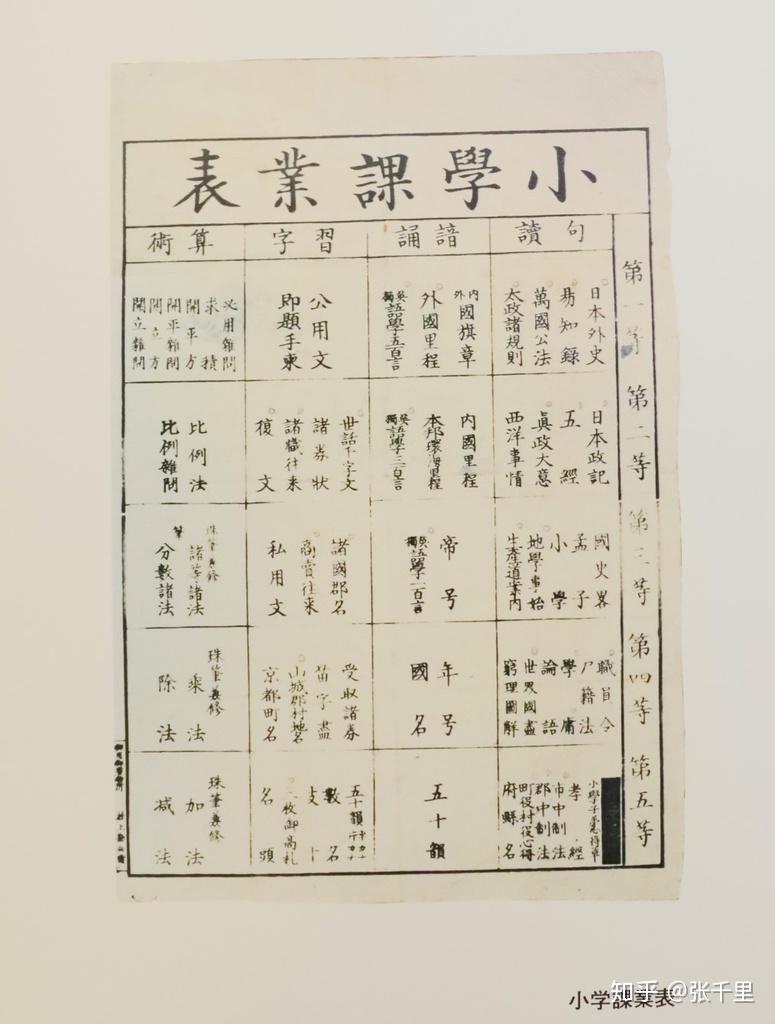 小學課業表
句讀
諳誦
習字
算術
第一等
日本外史
易知錄
萬國公法
太政諸規則
内外國旗章
外國里程
英獨語學五百言
公用文
即題手柬
必用雜問
求積
開平方
開平雜問
開立方
開立雜問
第二等
日本政記
五經
眞政大意
西洋事情
内國里程
本邦環海里程
英獨語學三百言
世話千字文
諸券狀
諸職往来
復文
比例法
比例雜問
第三等
國史畧
孟子
小學
地學事始
生產道案内
帝号
英獨語學一百言
諸國郡名
商賣往来
私用文
珠筆兼修
諸等諸法
筆
分數諸法
第四等
職員令
戸籍法
學庸
論語
世界國盡
窮理圖解
年号
國名
受取諸券
苗字盡
山城郡村地名
京都町名
珠筆兼修
乘法
除法
第五等
孝經
市中制法
郡中制法
町役村役心得
府縣名
五十韻
五十韻
數名
名頭
珠筆兼修
加法
減法
小学课業表
知乎 @张千里